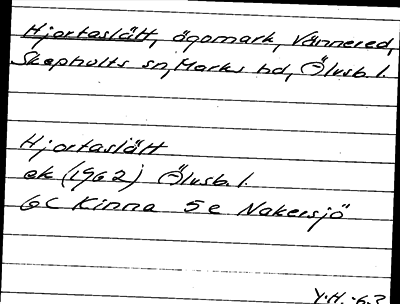 Hjortaslätt, ägomark, Vännered,
Skepholts sn, Marks hd, Älvsb. l.
Hjortaslätt
ek (1962) Älvsb. l.
6C Kinna 5e Nakersjö
Y.H. -63